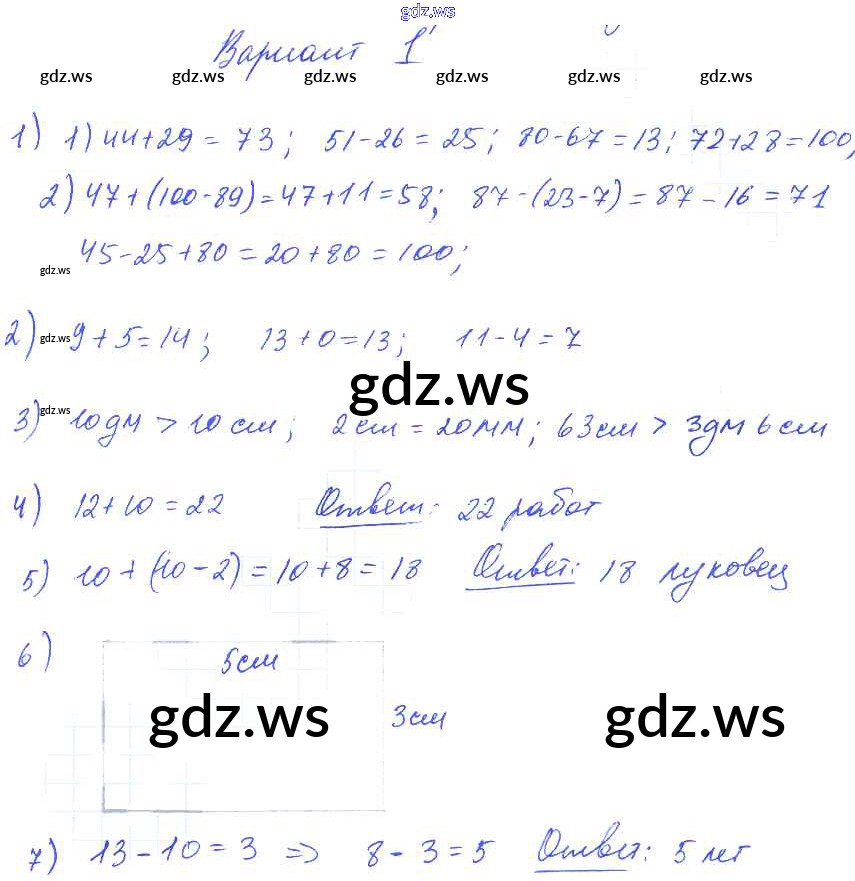 gdz.ws
Вариант 1
gdz.ws gdz.ws gdz.ws gdz.ws gdz.ws gdz.ws
1) 1) 44+29 = 73; 51-26 = 25; 80-67 = 13; 72+28 = 100,
2) 47+(100-89) = 47+11 = 58; 87-(23-7) = 87-16 = 71
45-25+80 = 20+80 = 100;
gdz.ws
2) gdz.ws 9+5 = 14; 13+0 = 13; 11-4 = 7
gdz.ws
3) gdz.ws 10дм > 10 см; 2см = 20мм; 63см > 3дм 6см
4) 12+10 = 22 Ответ: 22 работ
5) 10+(10-2) = 10+8 = 18 Ответ: 18 луковец
6)
5см
3см
gdz.ws gdz.ws
7) 13-10 = 3 => 8-3 = 5 Ответ: 5 лет